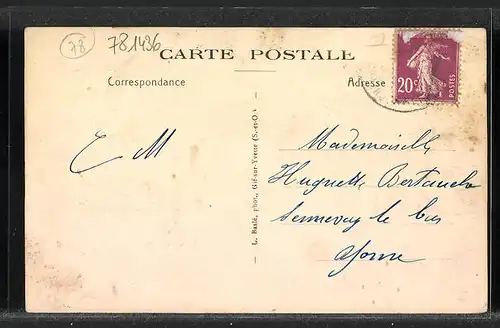 78
781436
CARTE POSTALE
Correspondance
Adresse
20c
POSTES
E M
L. Ratié, phot., Gif-sur-Yvette (S.-et-O.)
Mademoiselle
Huguette
Sennevoy le bas
Yonne